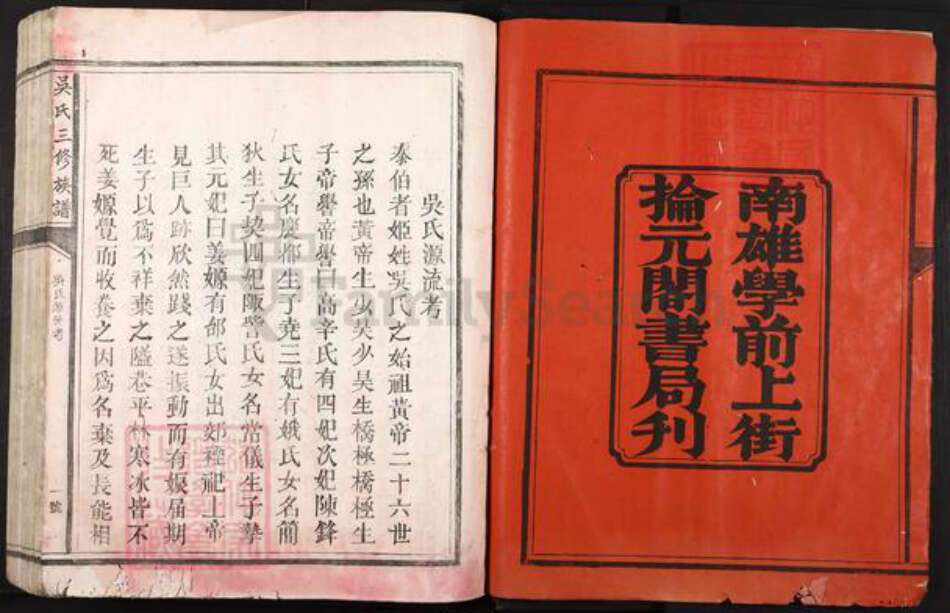 南雄學前上街
掄元閣書局刋
吳氏源流考
泰伯者姬姓吳氏之始祖黃帝二十六世
之孫也黃帝生少昊少昊生橋極橋極生
子帝嚳帝嚳曰高辛氏有四妃次妃陳鋒
氏女名慶都生子堯三妃有娀氏女名簡
狄生子契四妃陬訾氏女名常儀生子摯
其元妃曰姜嫄有邰氏女出郊禋祀上帝
見巨人跡欣然踐之遂振動而有娠屆期
生子以爲不祥棄之隘巷平林寒冰皆不
死姜嫄覺而收養之因爲名棄及長能相
吳氏三修族譜
吳氏源流考
一號
FamilySearch